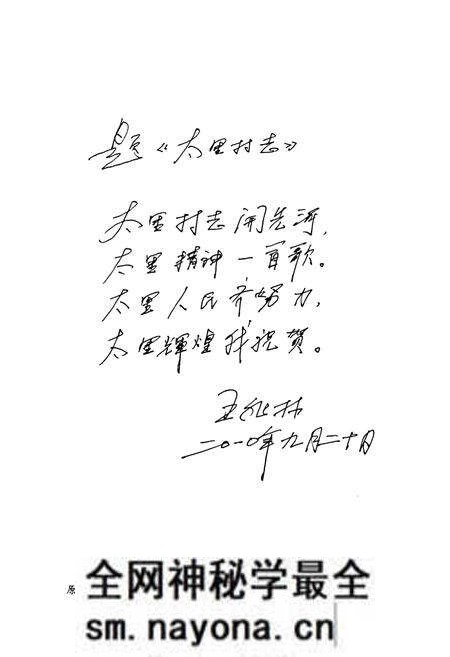 题《太里村志》
太里村志开先河，
太里精神一首歌。
太里人民齐努力，
太里辉煌我祝贺。
王
二〇一〇年九月二十日
原
全网神秘学最全
sm.nayona.cn